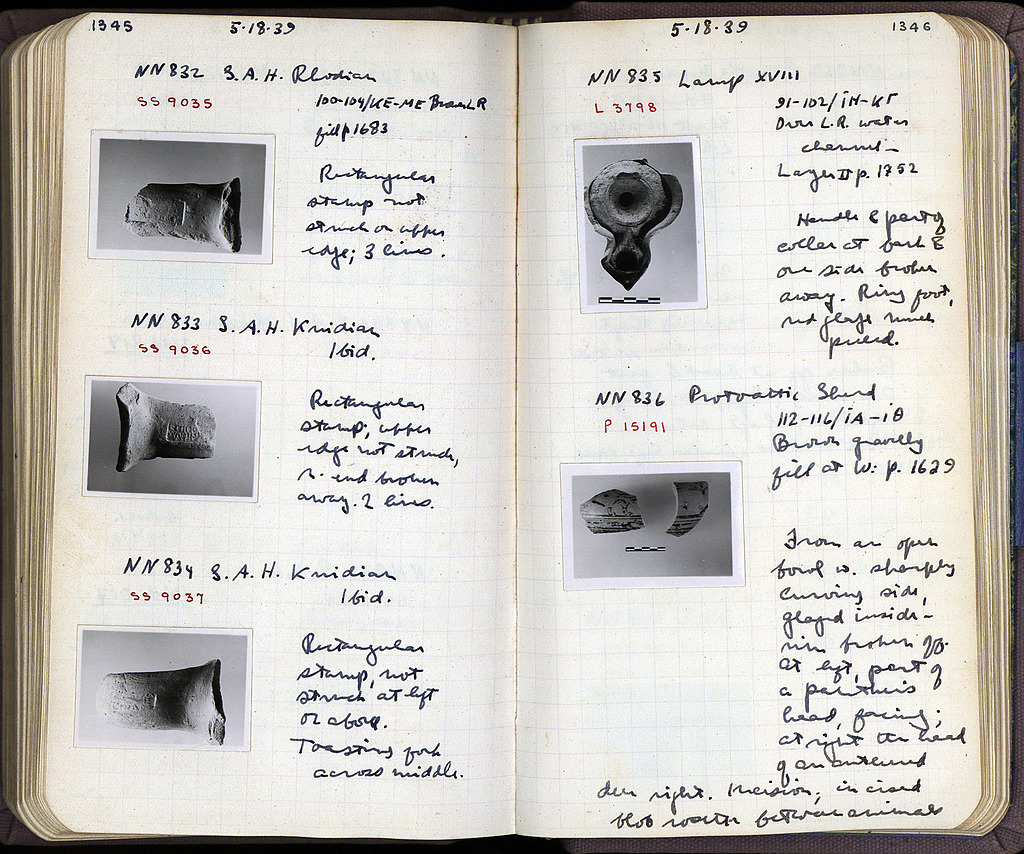 1345
5-18-39
NN 832 S.A.H. Rhodian
SS 9035
100-104/ΚΕ-ΜΕ Brown L.R
fill p. 1683
Rectangular
stamp not
struck on upper
edge; 3 lines.
NN 833 S.A.H. Knidian
SS 9036
Ibid.
Rectangular
stamp, upper
edge not struck,
r. end broken
away. 2 lines.
NN 834 S.A.H. Knidian
SS 9037
Ibid.
Rectangular
stamp, not
struck at left
or above.
Toasting fork
across middle.
5-18-39
1346
NN 835 Lamp XVIII
L 3798
91-102/ΙΗ-ΚΓ
Over L.R. water
channel -
Layer II p. 1752
Handle & part of
collar at back &
one side broken
away. Ring foot,
red glaze much
peeled.
NN 836 Protoattic Sherd
P 15191
112-116/ΙΑ-ΙΘ
Brown gravelly
fill at W: p. 1629
From an open
bowl w. sharply
curving side,
glazed inside -
rim broken off.
At left, part of
a panther's
head, facing;
at right the head
of an antlered
deer right. Incision; incised
blob rosette between animals